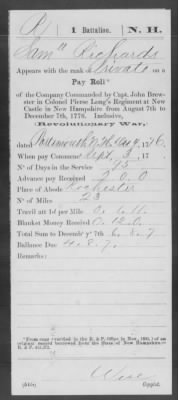 P 1 Battalion. N. H.
Sam'l Richards
Appears with the rank of Private on a
Pay Roll*
of the Company Commanded by Capt. John Brew-
ster in Colonel Pierse Long's Regiment at New
Castle in New Hampshire from August 7th to
December 7th, 1776, Inclusive,
Revolutionary War,
dated Portsmouth N.H. 177 6.
When pay Commence Sept. 3, 17
N° of Days in the Service 95
Advance pay Received 2. 0. 0
Place of Abode Rochester
N° of Miles 23
Travil att 1d per Mile
Blanket Money Received 0. 12. 0
Total Sum to Decemby 7th 6. 8. 7
Ballance Due 4. 8. 7.
Remarks:
*From copy (certified in the R. & P. Office in Nov., 1885,) of an
original record borrowed from the State of New Hampshire—
R. & P.
Copyist.